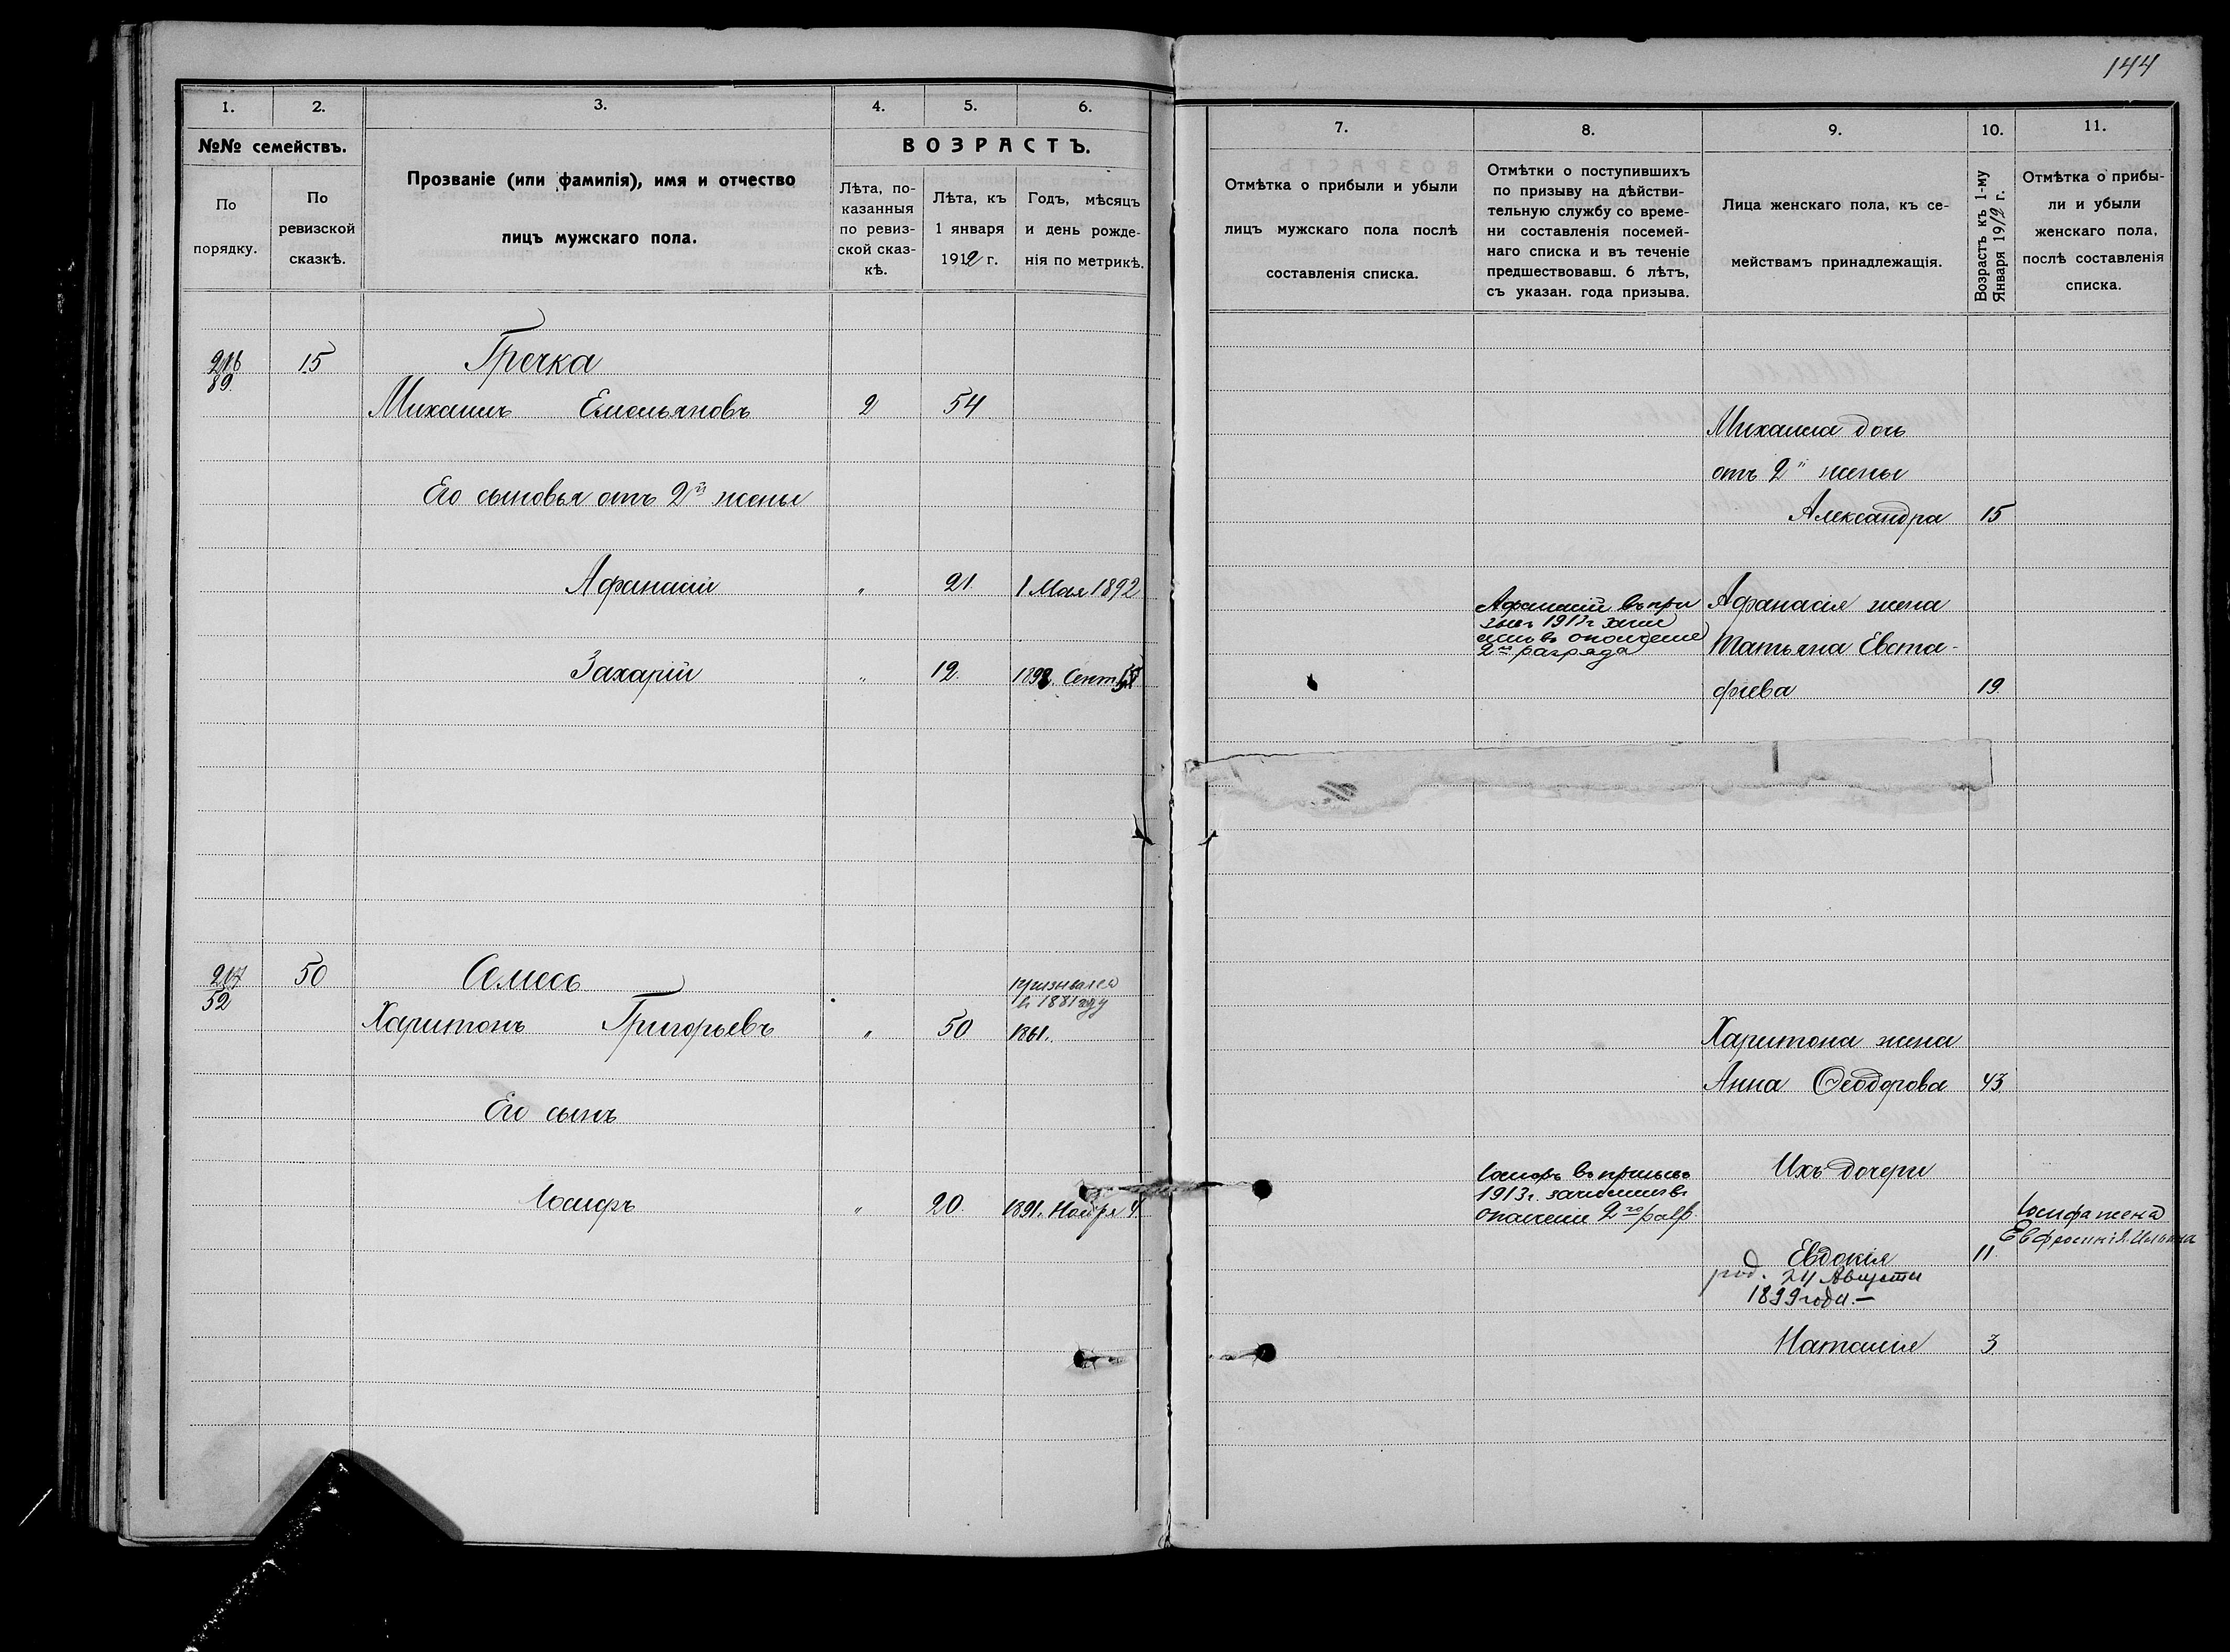 144
1.
2.
3.
4.
5.
6.
№№ семействъ.
По
порядку.
По
ревизской
сказкѣ.
Прозваніе (или фамилія), имя и отчество
лицъ мужскаго пола.
ВОЗРАСТЪ.
Лѣта, по-
казанныя
по ревиз-
ской сказ-
кѣ.
Лѣта, къ
1 января
1912 г.
Годъ, мѣсяцъ
и день рожде-
нія по метрикѣ.
15
Гречка
89
Михаилъ Емельяновъ 2 54
Его сыновья отъ 2й жены
Афанасій " 21. 1 Мая 1892
Захарій " 12. Сент
50
52
Харитонъ Григорьевъ " 50 1861.
призывался
въ 1881 году
Его сынъ
Іосифъ " 20. 1891. Ноября 4.
7.
8.
9.
10.
11.
Отмѣтка о прибыли и убыли
лицъ мужскаго пола послѣ
составленія списка.
Отмѣтки о поступившихъ
по призыву на дѣйстви-
тельную службу со време-
ни составленія посемей-
наго списка и въ теченіе
предшествовавш. 6 лѣтъ,
съ указан. года призыва.
Лица женскаго пола, къ се-
мействамъ принадлежащія.
Возрастъ къ 1-му
Января 1912 г.
Отмѣтка о прибы-
ли и убыли
женскаго пола,
послѣ составленія
списка.
Михаила дочь
отъ 2й жены
Александра 15
Афанасій въ при
зывъ 1913 г зачи
сленъ въ ополченіе
2го разряда
Афанасія жена
Татьяна Евста-
фіева 19.
Харитона жена
Анна Ѳеодорова 43.
Іосифъ въ призывъ
1913 г. зачисленъ въ
ополченіе 2го разр.
Ихъ дочери
Евдокія 11.
род. 24 Августа
1899 года.—
Наталія 3
Іосифа жена
Евфросинія Ильина